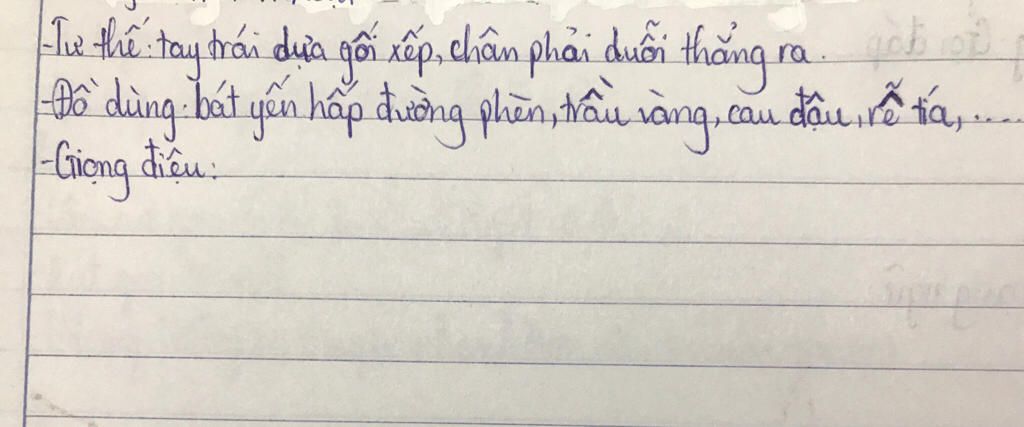 -Tư thế: tay trái dựa gối xếp, chân phải duỗi thẳng ra.
-Đồ dùng: bát yến hấp đường phèn, trầu vàng, cau đậu, rễ tía,....
-Giọng điệu: